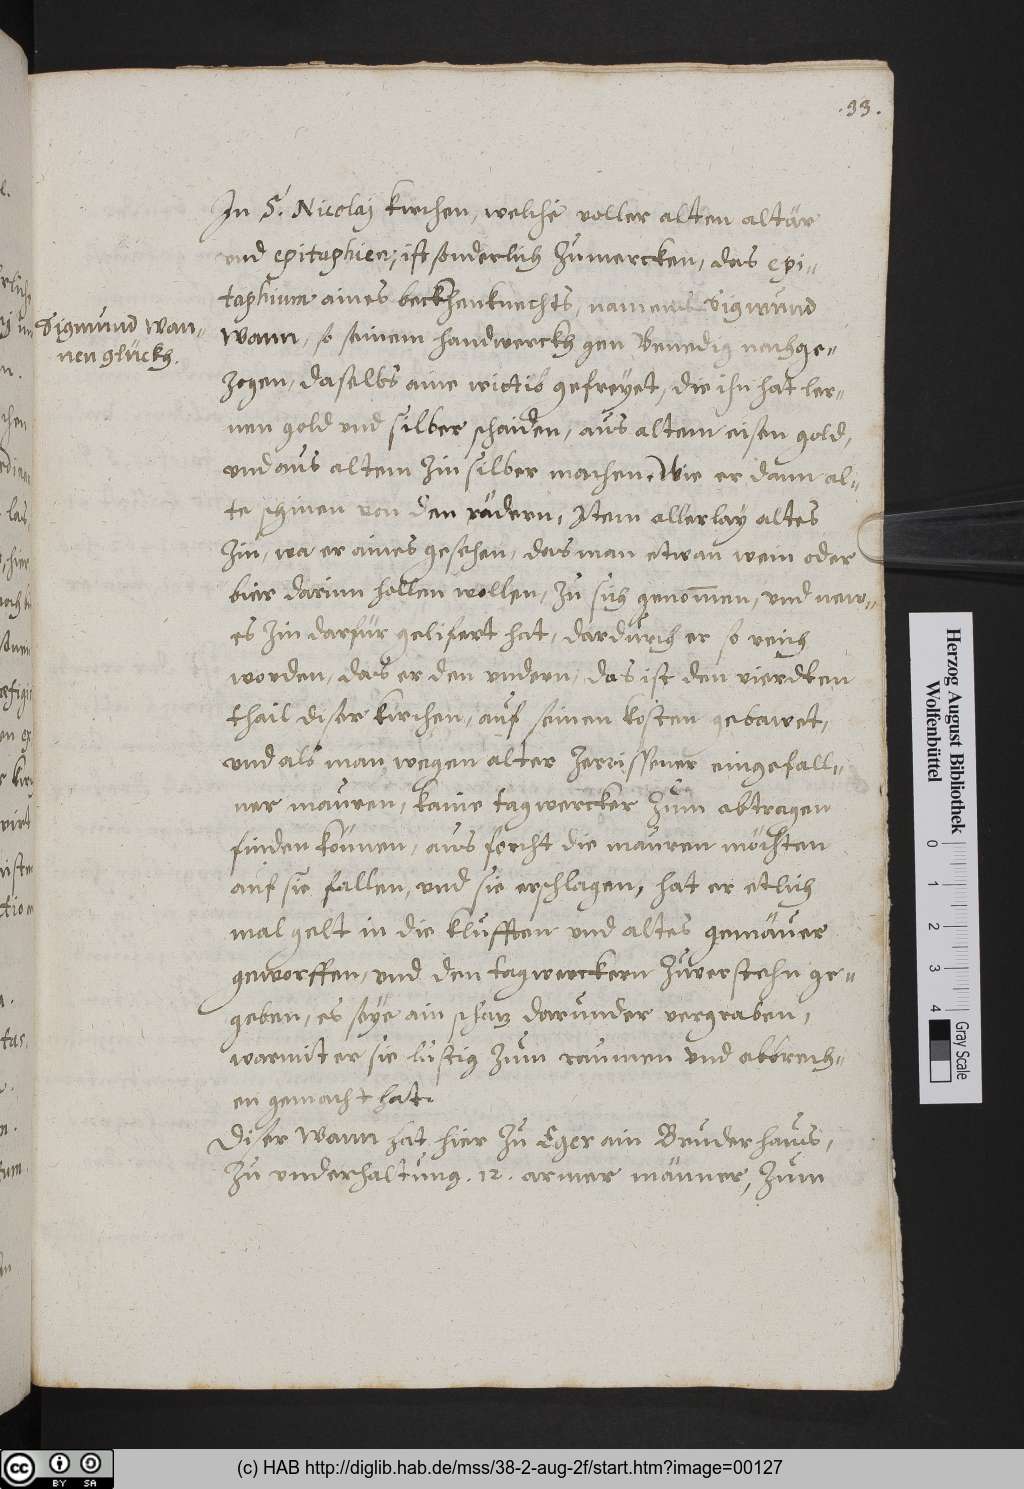 .93.
In S. Nicolaj kirchen, welche voller alten altär
und epitaphien, ist sonderlich zumercken, das epi-
taphium aines beckhenknechts, namens Sigmund
Wann, so seinem handwerckh gen Venedig nachge-
zogen, daselbs aine gefreyet, die ihn hat ler-
nen gold und silber schaiden, aus altem eisen gold,
und aus altem zin silber machen. Wie er dann al-
te schinen von den rädern, Item allerlay altes
zin, wa er aines gesehen, das man etwan wein oder
bier darinn hollen wollen, zu sich genommen, und new-
es zin darfür gelifert hat, dardurch er so reich
worden, das er den undern, das ist den vierdten
thail diser kirchen, auf seinen kosten gebawet,
und als man wegen alter zerrissener eingefall-
ner mauren, kaine tagwercker zum abtragen
finden können, aus forcht die mauren möchten
auf sie fallen, und sie erschlagen, hat er etlich
mal gelt in die klufften und altes gemäuer
geworffen, und den tagwerckern zuverstehn ge-
geben, es seye ain schatz darunder vergraben,
warmit er sie lustig zum raumen und abbrech-
en gemacht hat.
Diser Wann hat hier zu Eger ain Bruderhaus,
zu underhaltung .12. armer männer, zum
Sigmund Wan-
nen glückh.
Herzog August Bibliothek
Wolfenbüttel
0 1 2 3 4
Gray Scale
cc BY SA
(c) HAB http://diglib.hab.de/mss/38-2-aug-2f/start.htm?image=00127